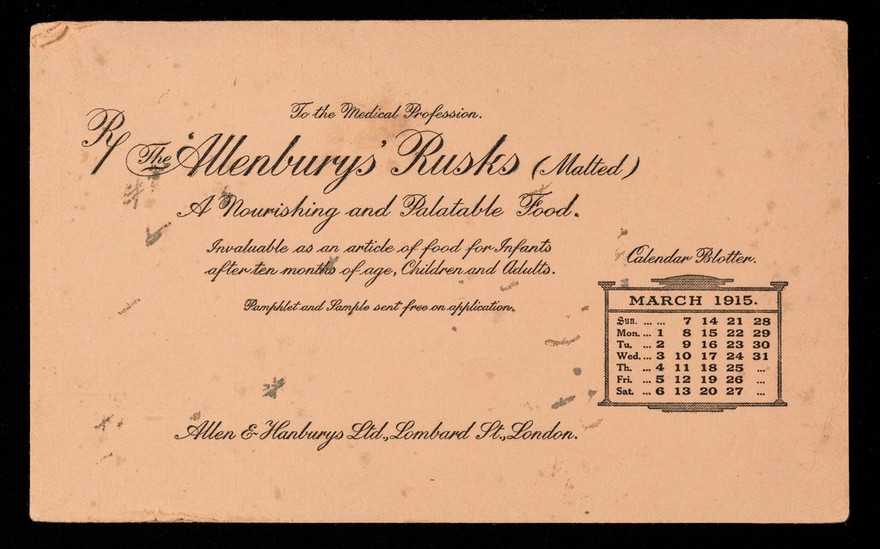 To the Medical Profession.
R/ The 'Allenburys' Rusks (Malted)
A Nourishing and Palatable Food.
Invaluable as an article of food for Infants
after ten months of age, Children and Adults.
Pamphlet and Sample sent free on application.
Calendar Blotter.
MARCH 1915.
Sun. ... ... 7 14 21 28
Mon. ... 1 8 15 22 29
Tu. ... 2 9 16 23 30
Wed. ... 3 10 17 24 31
Th. ... 4 11 18 25 ...
Fri. ... 5 12 19 26 ...
Sat. ... 6 13 20 27 ...
Allen & Hanburys Ltd., Lombard St., London.